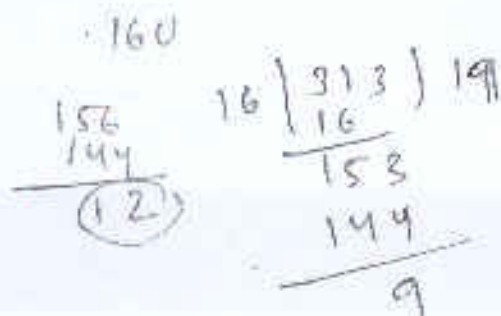 .160
156
144
12
16 ) 313 ) 19
16
153
144
9